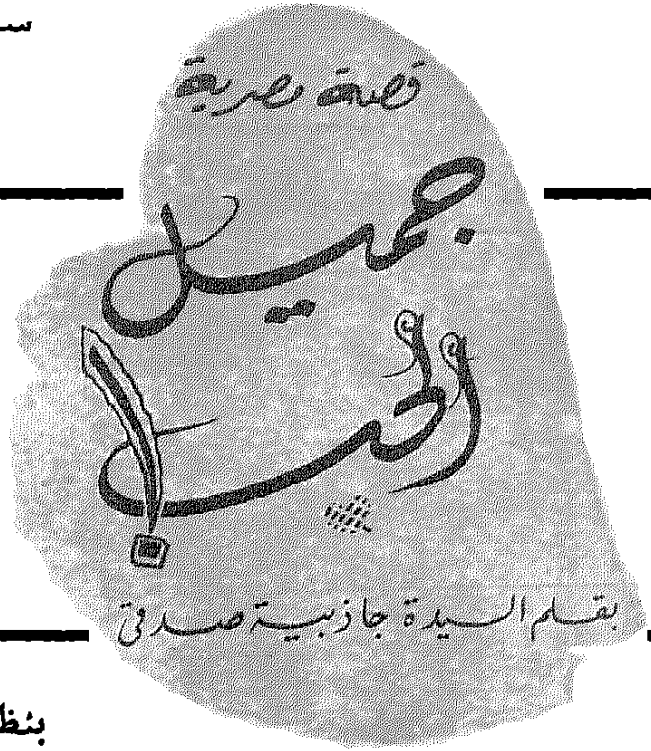 قصة مصرية
جميل
الحب!
بقلم السيدة جاذبية صدقي